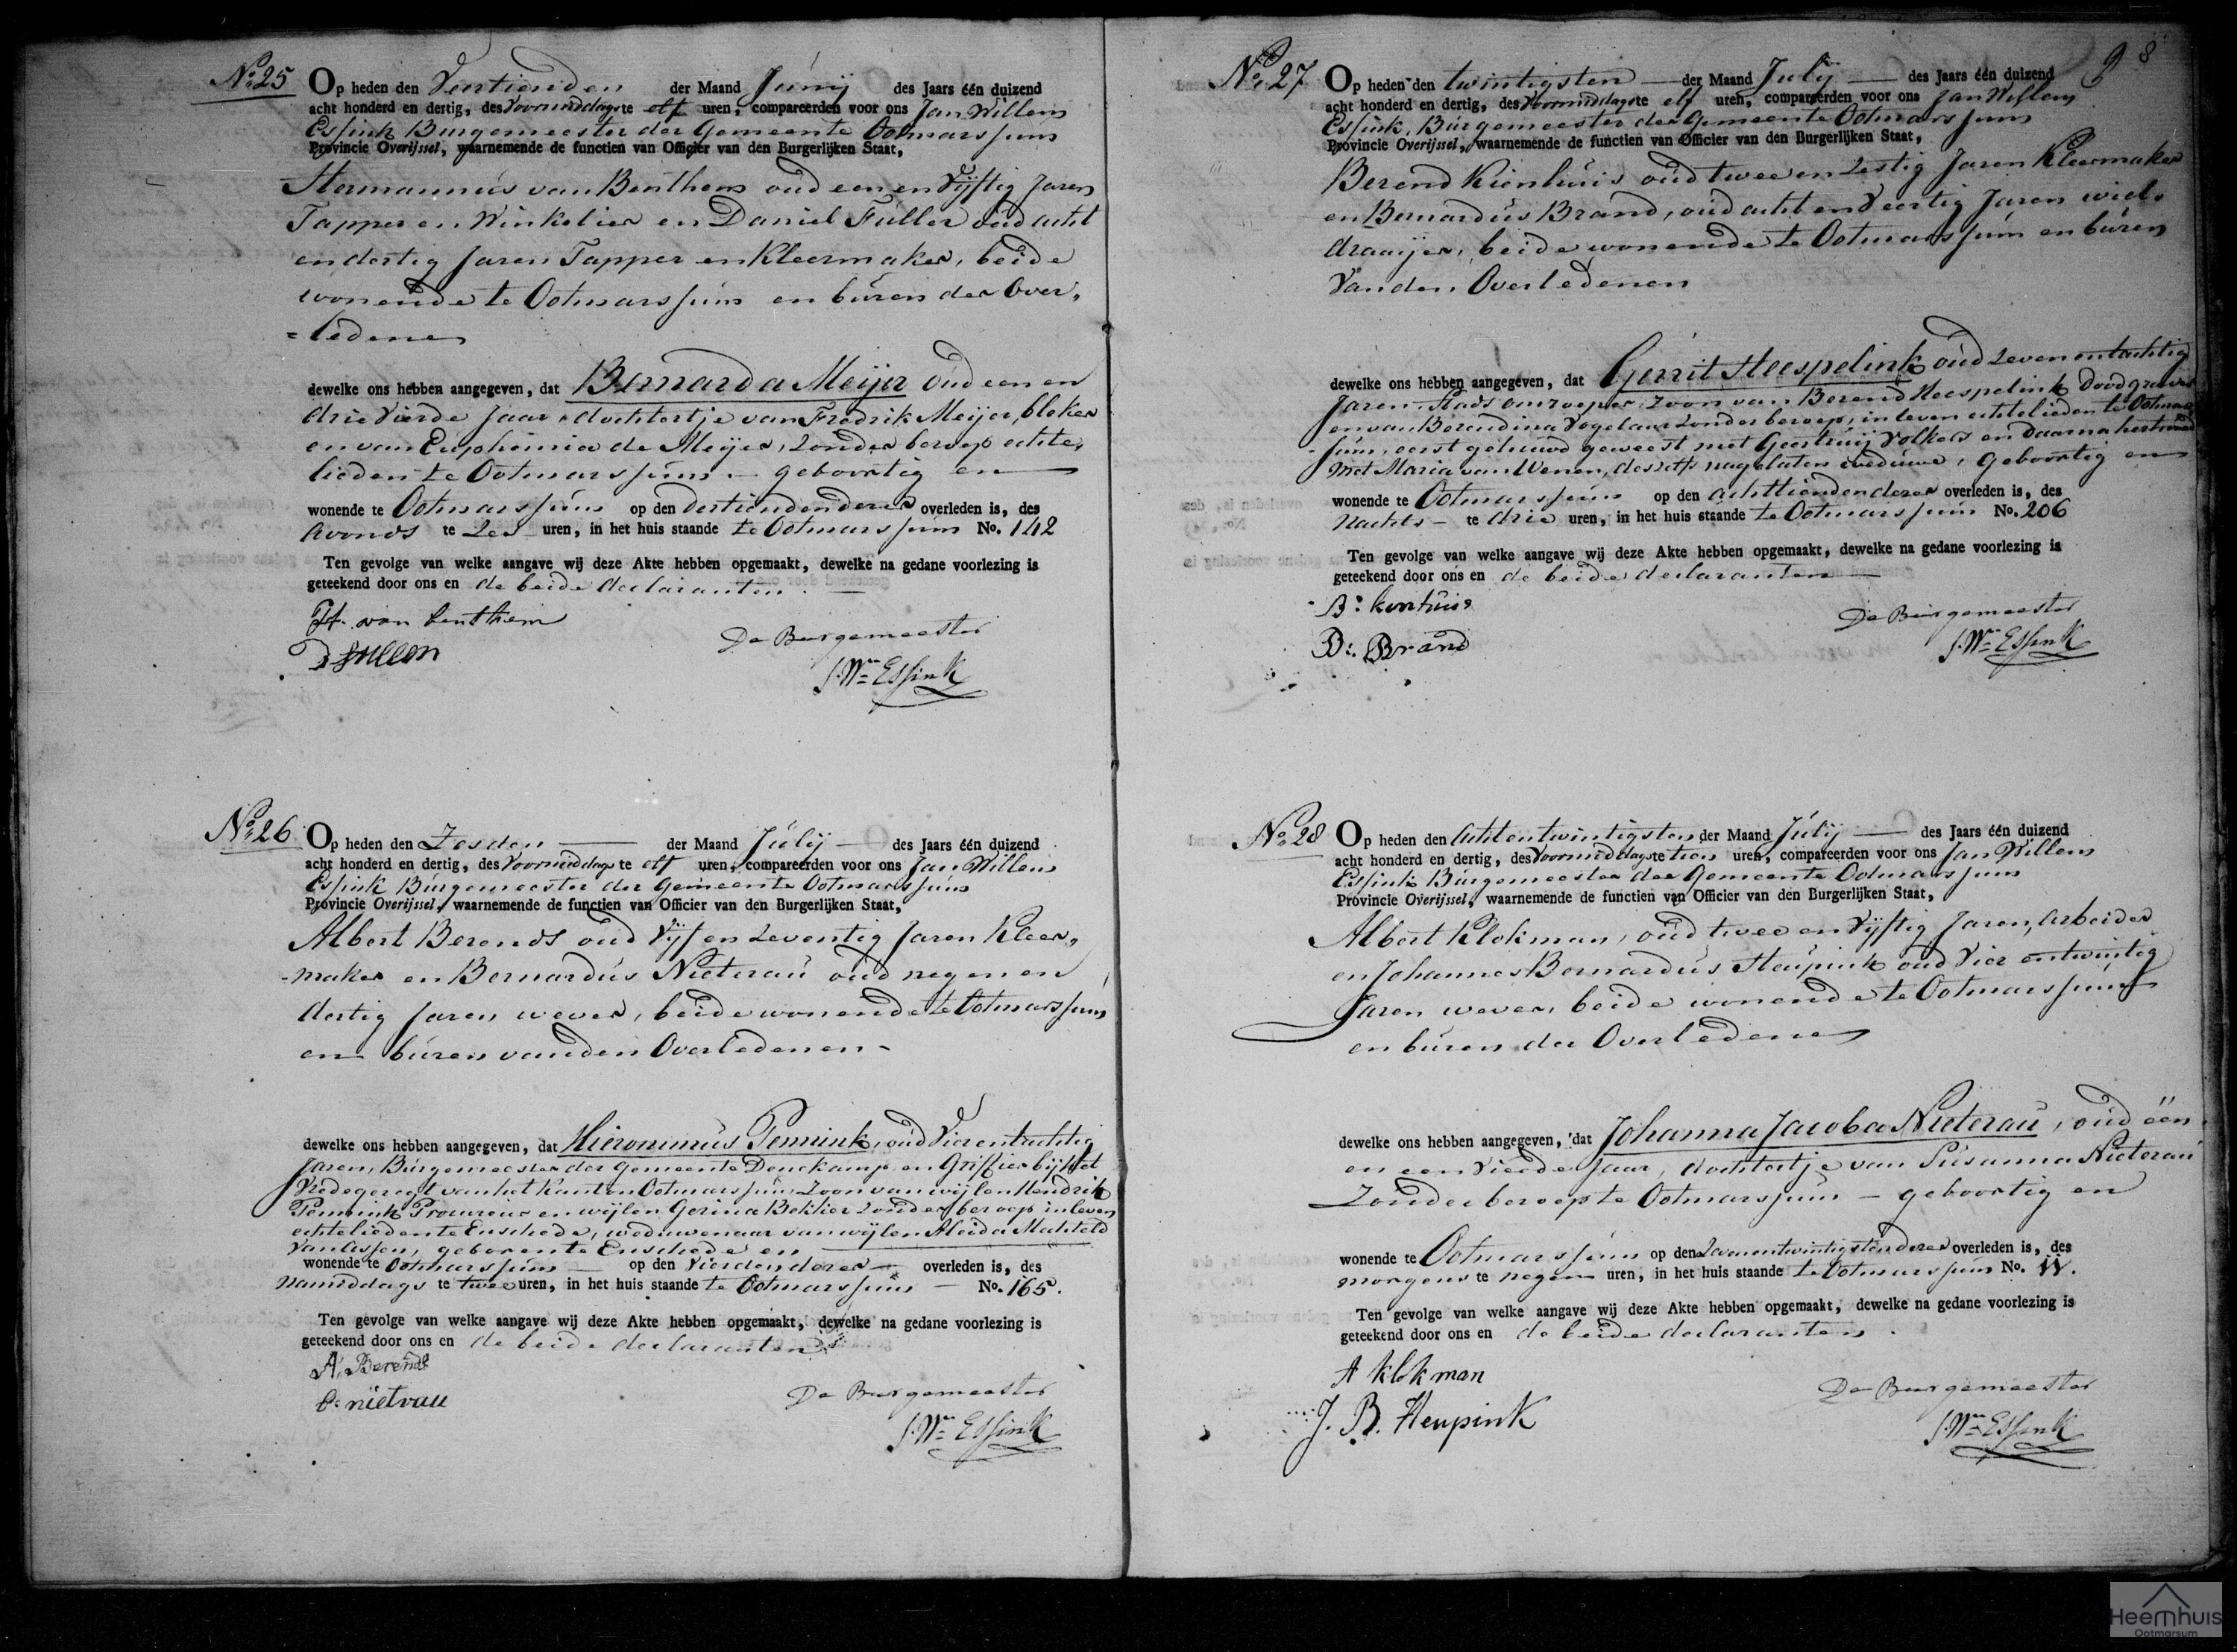 No. 25 Op heden den Veertienden der Maand Junij des Jaars één duizend
acht honderd en dertig, des Voormiddags te elf uren, compareerden voor ons Jan Willem
Essink Burgemeester der Gemeente Ootmarssum
Provincie Overijssel, waarnemende de functien van Officier van den Burgerlijken Staat,
Hermannus van Benthem oud een en Vijftig Jaren
Tapper en Winkelier en Daniel Fuller oud acht
en dertig Jaren Tapper en Kleermaker, beide
wonende te Ootmarssum en buren der Over„
= ledene
dewelke ons hebben aangegeven, dat Bernarda Meijer oud een en
drie Vierde Jaar dochtertje van Fredrik Meijer, bleker
en van Euphemia de Meijer, zonder beroep echte„
lieden te Ootmarssum – geboortig en
wonende te Ootmarssum op den dertienden dezer overleden is, des
avonds te zes uren, in het huis staande te Ootmarssum No. 142
Ten gevolge van welke aangave wij deze Akte hebben opgemaakt, dewelke na gedane voorlezing is
geteekend door ons en de beide declaranten. —
H. van benthem
D Fullen
De Burgemeester
J. Wm Essink
No. 26 Op heden den Zesden — der Maand Julij — des Jaars één duizend
acht honderd en dertig, des Voormiddags te elf uren, compareerden voor ons Jan Willem
Essink Burgemeester der Gemeente Ootmarssum
Provincie Overijssel, waarnemende de functien van Officier van den Burgerlijken Staat,
Albert Berends oud Vijf en zeventig Jaren Kleer„
-maker en Bernardus Nieterau oud negen en
dertig Jaren wever, beide wonende te Ootmarssum
en buren van den Overledenen –
dewelke ons hebben aangegeven, dat Hieronimus Pennink, oud Vier en tachtig
Jaren, Burgemeester der Gemeente Denekamp, en Griffier bij het
Vredegeregt van het Kanton Ootmarssum, Zoon van wijlen Hendrik
Pennink Procureur en wijlen Gerina Bekker zonder beroep in leven
echtelieden te Enschede, weduwenaar van wijlen Aleida Machteld
van, geboren te Enschede en
wonende te Ootmarssum — op den Vierden dezer — overleden is, des
namiddags te twee uren, in het huis staande te Ootmarssum — No. 165.
Ten gevolge van welke aangave wij deze Akte hebben opgemaakt, dewelke na gedane voorlezing is
geteekend door ons en de beide declaranten.
A. Berends
B: nietrau
De Burgemeester
J. Wm Essink
98
No. 27 Op heden den twintigsten — der Maand Julij — des Jaars één duizend
acht honderd en dertig, des Voormiddags te elf uren, compareerden voor ons Jan Willem
Essink, Burgemeester der Gemeente Ootmarssum
Provincie Overijssel, waarnemende de functien van Officier van den Burgerlijken Staat,
Berend Kienhuis oud twee en zestig Jaren Kleermaker
en Bernardus Brand, oud acht en Veertig Jaren wiel„
draaijer, beide wonende te Ootmarssum en buren
Van den Overledenen
dewelke ons hebben aangegeven, dat Gerrit Heespelink oud zeven en tachtig
Jaren Stads omroeper, Zoon van Berend Heespelink Doodgraver
en van Berendina Vogelaar zonder beroep, in leven echtelieden te Ootmars
sum, eerst gehuwd geweest met Geertruij Volkers en daarna hertrouwd
met Maria van Wenen, deszelfs nagelaten weduwe, geboortig en
wonende te Ootmarssum op den achttienden dezer overleden is, des
nachts – te drie uren, in het huis staande te Ootmarssum No. 206
Ten gevolge van welke aangave wij deze Akte hebben opgemaakt, dewelke na gedane voorlezing is
geteekend door ons en de beide declaranten —
B: kienhuis
B: Brand
De Burgemeester
J. Wm Essink
No. 28 Op heden den Acht en twintigsten der Maand Julij — des Jaars één duizend
acht honderd en dertig, des Voormiddags te tien uren, compareerden voor ons Jan Willem
Essink Burgemeester der Gemeente Ootmarssum
Provincie Overijssel, waarnemende de functien van Officier van den Burgerlijken Staat,
Albert Klokman, oud twee en Vijftig Jaren, Arbeider
en Johannes Bernardus Heupink oud Vier en twintig
Jaren wever, beide wonende te Ootmarssum
en buren der Overledene
dewelke ons hebben aangegeven, dat Johanna Jacoba Nieterau, oud één
en een Vierde Jaar, dochtertje van Susanna Nieterau
zonder beroep te Ootmarssum – geboortig en
wonende te Ootmarssum op den Zevenentwintigsten dezer overleden is, des
morgens te negen uren, in het huis staande te Ootmarssum No. 11.
Ten gevolge van welke aangave wij deze Akte hebben opgemaakt, dewelke na gedane voorlezing is
geteekend door ons en de beide declaranten.
A klokman
J. B. Heupink
De Burgemeester
J. Wm Essink
Heemhuis
Ootmarsum